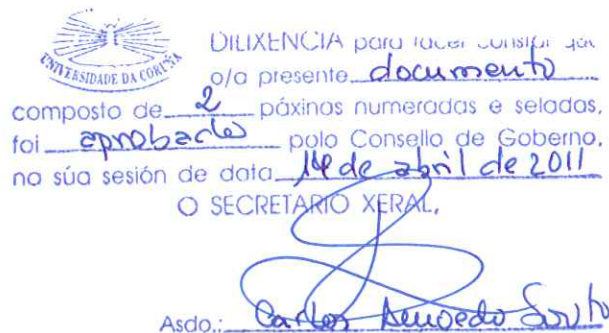 UNIVERSIDADE DA CORUÑA
DILIXENCIA para facer constar que
o/a presente documento
composto de 2 páxinas numeradas e seladas,
foi aprobado polo Consello de Goberno,
na súa sesión de data 14 de abril de 2011
O SECRETARIO XERAL,
Asdo.: Carlos